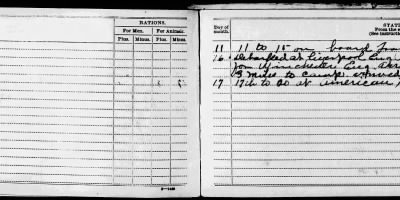 RATIONS.
For Men. For Animals.
Plus. Minus. Plus. Minus.
3—1458
Day of month.
STAT
From the
(See instructi
11 11 to 15 on board
16 Debarked at Liverpool Eng
for Winchester Eng
3 miles to camp
17 17th to 20 at American